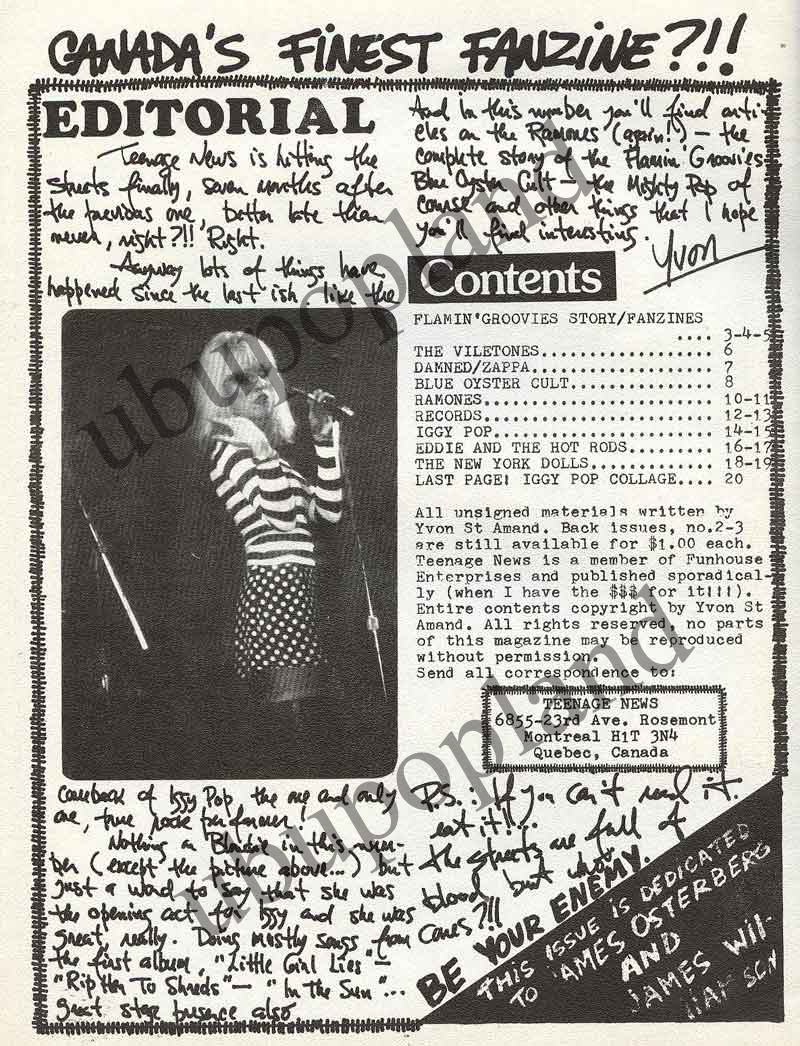 CANADA'S FINEST FANZINE?!!
EDITORIAL
Teenage News is hitting the
streets finally, seven months after
the previous one, better late than
never, right?!! Right.
Anyway lots of things have
happened since the last ish like the
comeback of Iggy Pop, the one and only
one, true rock performer!
Nothing on Blondie in this num-
ber (except the picture above...) but
just a word to say that she was
the opening act for Iggy and she was
great, really. Doing mostly songs from
the first album, "Little Girl Lies" —
"Rip Her To Shreds" — "In The Sun"...
great stage presence also
And in this number you'll find arti-
cles on the Ramones (again!) — the
complete story of the Flamin' Groovies
Blue Oyster Cult — the Mighty Pop of
course and other things that I hope
you'll find interesting.
Yvon
Contents
FLAMIN'GROOVIES STORY/FANZINES
.... 3-4-5
THE VILETONES.................. 6
DAMNED/ZAPPA................... 7
BLUE OYSTER CULT............... 8
RAMONES........................ 10-11
RECORDS........................ 12-13
IGGY POP....................... 14-15
EDDIE AND THE HOT RODS......... 16-17
THE NEW YORK DOLLS............. 18-19
LAST PAGE! IGGY POP COLLAGE.... 20
All unsigned materials written by
Yvon St Amand. Back issues, no.2-3
are still available for $1.00 each.
Teenage News is a member of Funhouse
Enterprises and published sporadical-
ly (when I have the $$$ for it!!!).
Entire contents copyright by Yvon St
Amand. All rights reserved, no parts
of this magazine may be reproduced
without permission.
Send all correspondence to:
TEENAGE NEWS
6855-23rd Ave. Rosemont
Montreal H1T 3N4
Quebec, Canada
P.S.: If you can't read it.
eat it!!...
the streets are full of
blood but who
cares?!!
BE YOUR ENEMY.
THIS ISSUE IS DEDICATED
TO JAMES OSTERBERG
AND
JAMES WIL-
LIAMSON
ubupopland
ubupopland